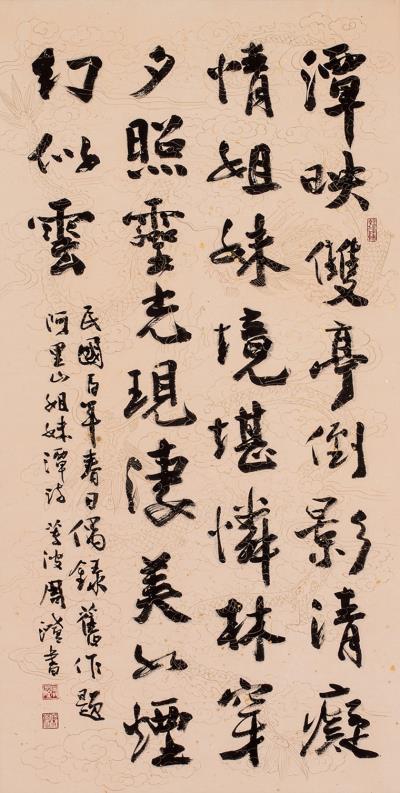 潭映雙亭倒影清癡
情姐妹境堪憐林穿
夕照靈光現淒美如煙
幻似雲
民國百年春日偶錄舊作題
阿里山姐妹潭詩 蓴波周澄書